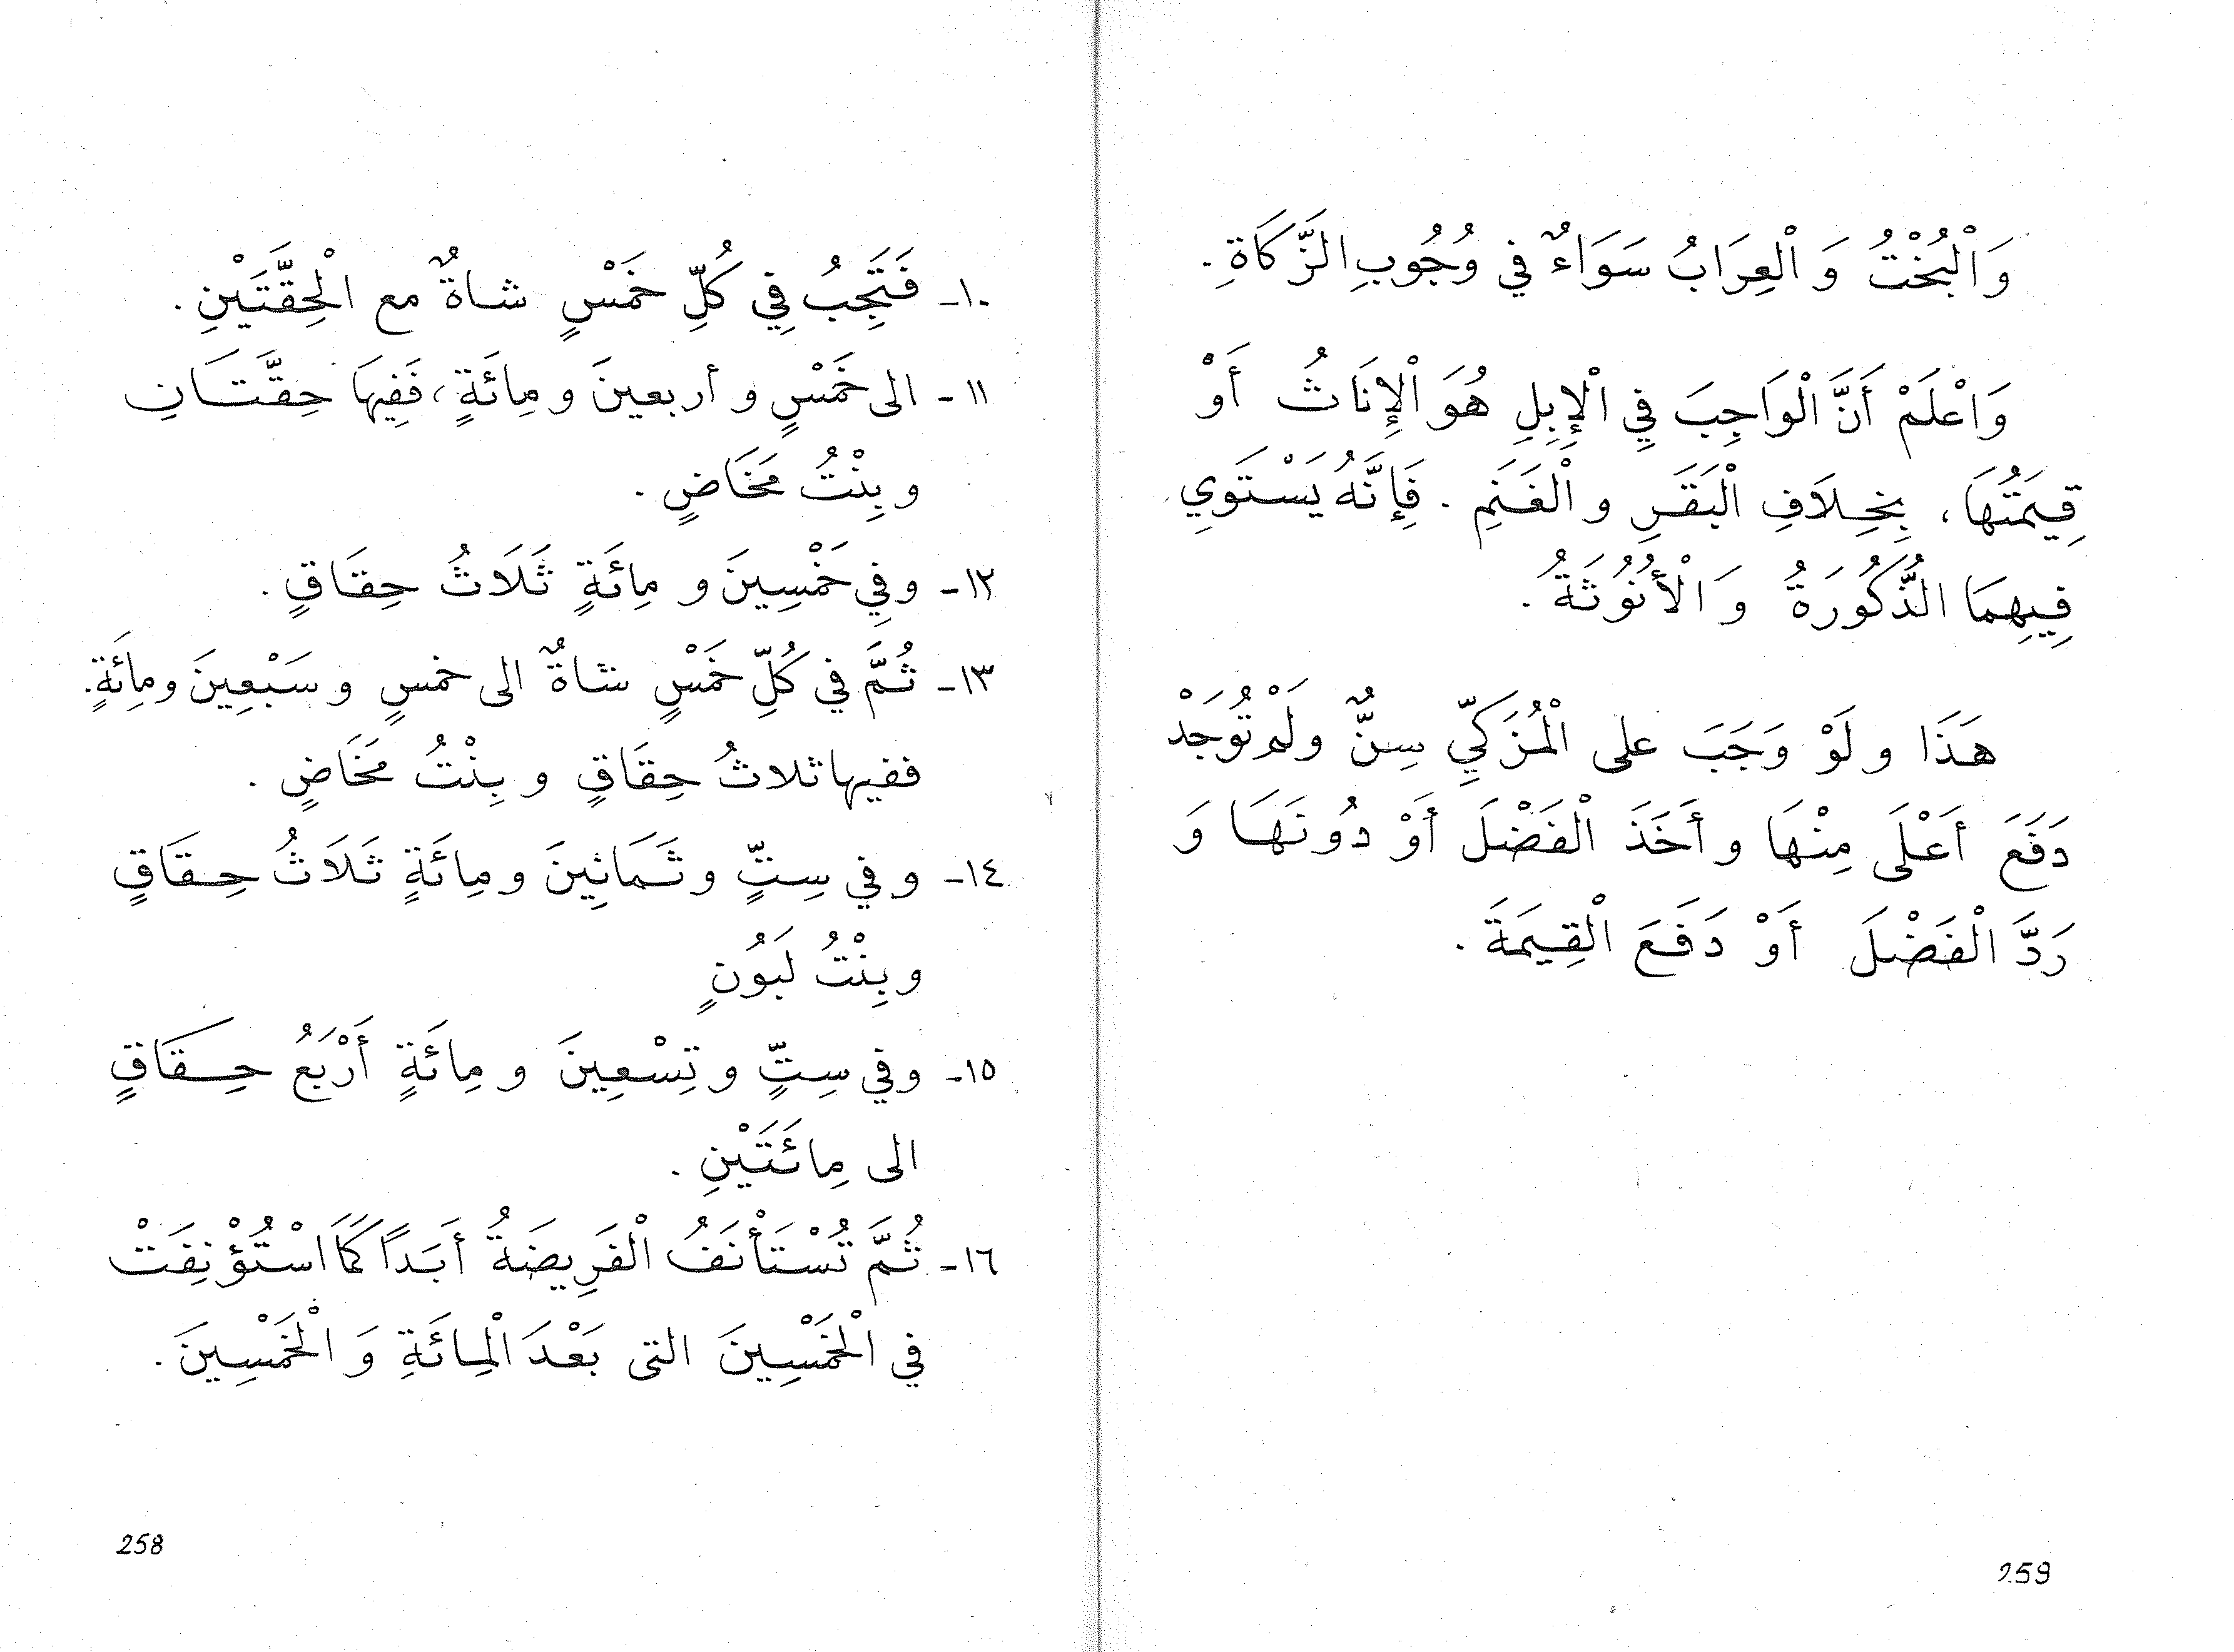 ١٠- فَتَجِبُ فِي كُلِّ خَمْسٍ شاةٌ مع الْحِقَّتَيْنِ.
١١- الى خَمْسٍ و أربعينَ و مِائَةٍ، فَفِيهَا حِقَّتَانِ
و بِنْتُ مَخَاضٍ.
١٢- وفِي خَمْسِينَ و مِائَةٍ ثَلَاثُ حِقَاقٍ.
١٣- ثُمَّ في كُلِّ خَمْسٍ شاةٌ الى خمسٍ و سَبْعِينَ ومِائَةٍ.
ففيها ثلاثُ حِقَاقٍ و بِنْتُ مَخَاضٍ.
١٤- و في سِتٍّ و ثَمَانِينَ و مِائَةٍ ثَلَاثُ حِقَاقٍ
و بِنْتُ لَبُونٍ
١٥- وفي سِتٍّ و تِسْعِينَ و مِائَةٍ أَرْبَعُ حِقَاقٍ
الى مِائَتَيْنِ.
١٦- ثُمَّ تُسْتَأْنَفُ الْفَرِيضَةُ أَبَدًا كَمَا اسْتُؤْنِفَتْ
في الْخَمْسِينَ التى بَعْدَ الْمِائَةِ وَ الْخَمْسِينَ.
258
وَ الْبُخْتُ وَ الْعِرَابُ سَوَاءٌ في وُجُوبِ الزَّكَاةِ.
وَ اعْلَمْ أَنَّ الْوَاجِبَ فِي الْإِبِلِ هُوَ الْإِنَاثُ أَوْ
قِيمَتُهَا، بِخِلَافِ الْبَقَرِ و الْغَنَمِ. فَإِنَّهُ يَسْتَوِي
فِيهِمَا الذُّكُورَةُ وَ الْأُنُوثَةُ.
هَذَا و لَوْ وَجَبَ على الْمُزَكِّي سِنٌّ ولَمْ تُوجَدْ
دَفَعَ أَعْلَى مِنْهَا و أَخَذَ الْفَضْلَ أَوْ دُونَهَا وَ
رَدَّ الْفَضْلَ أَوْ دَفَعَ الْقِيمَةَ.
259